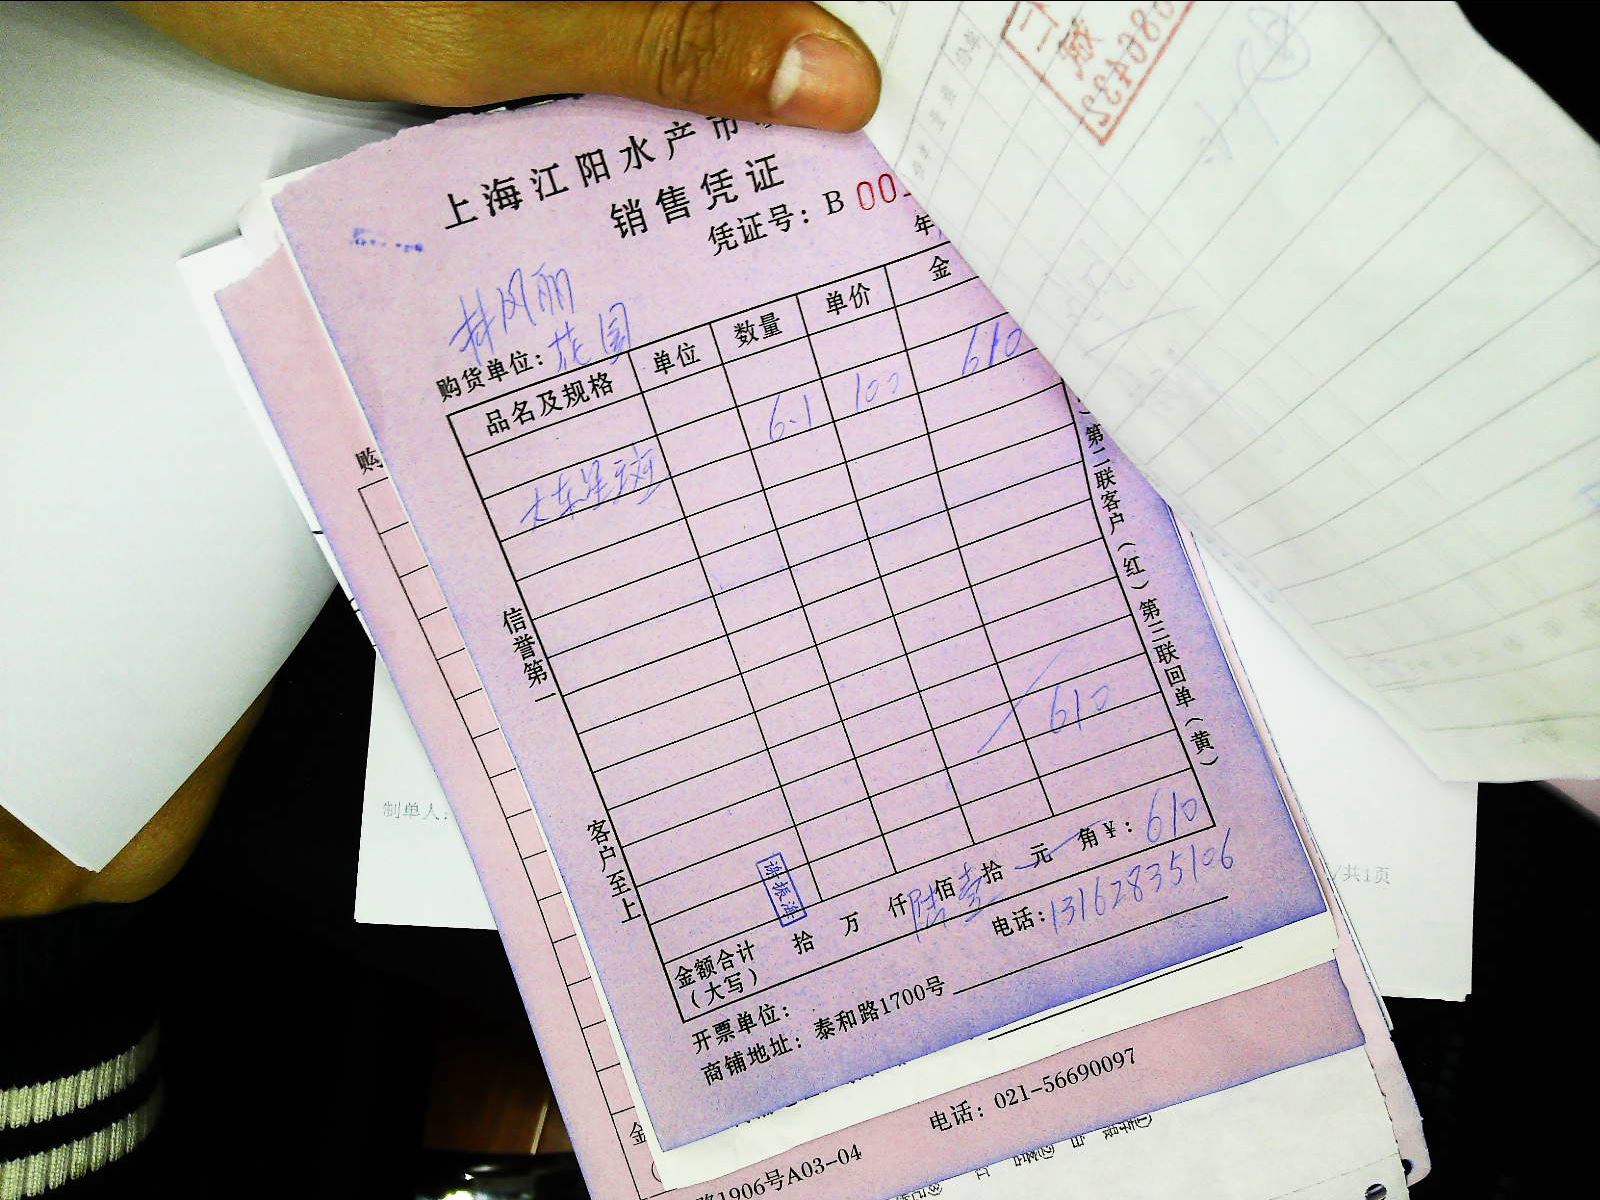 上海江阳水产市
销售凭证
凭证号：B 00
年
风丽
购货单位：花园
品名及规格 单位 数量 单价 金
大东星斑 6.1 100 610
610
信誉第一
客户至上
）第二联客户（红）第三联回单（黄）
金额合计（大写） 拾 万 仟 陆佰壹拾 元 角 ¥：610
开票单位：
电话：13162835106
商铺地址：泰和路1700号
购
制单人：
/共1页
金
电话：021-56690097
路1906号A03-04